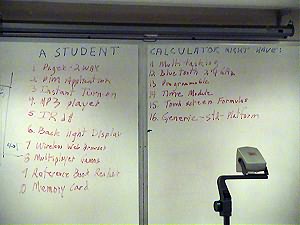 A STUDENT
1. Pager-2way
2. PIM Application
3 Instant Turn-on
4. MP3 player
5 IR
6. Back light Display
7 Wireless Web Browser
8 Multiplayer
9 Reference Book Reader
10 Memory Card
CALCULATOR MIGHT HAVE:
11 Multi tasking
12 Bluetooth
13 Programmable
14 Time Module
15 Touch screen Formulas
16. Generic-std-Platform